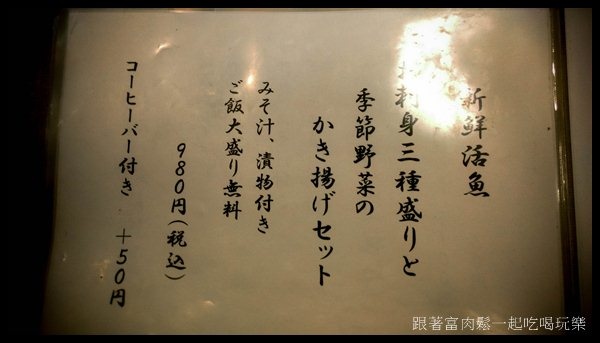 新鮮活魚
お刺身三種盛りと
季節野菜の
かき揚げセット
みそ汁、漬物付き
ご飯大盛り無料
980円(税込)
コーヒーバー付き +50円
跟著富肉鬆一起吃喝玩樂